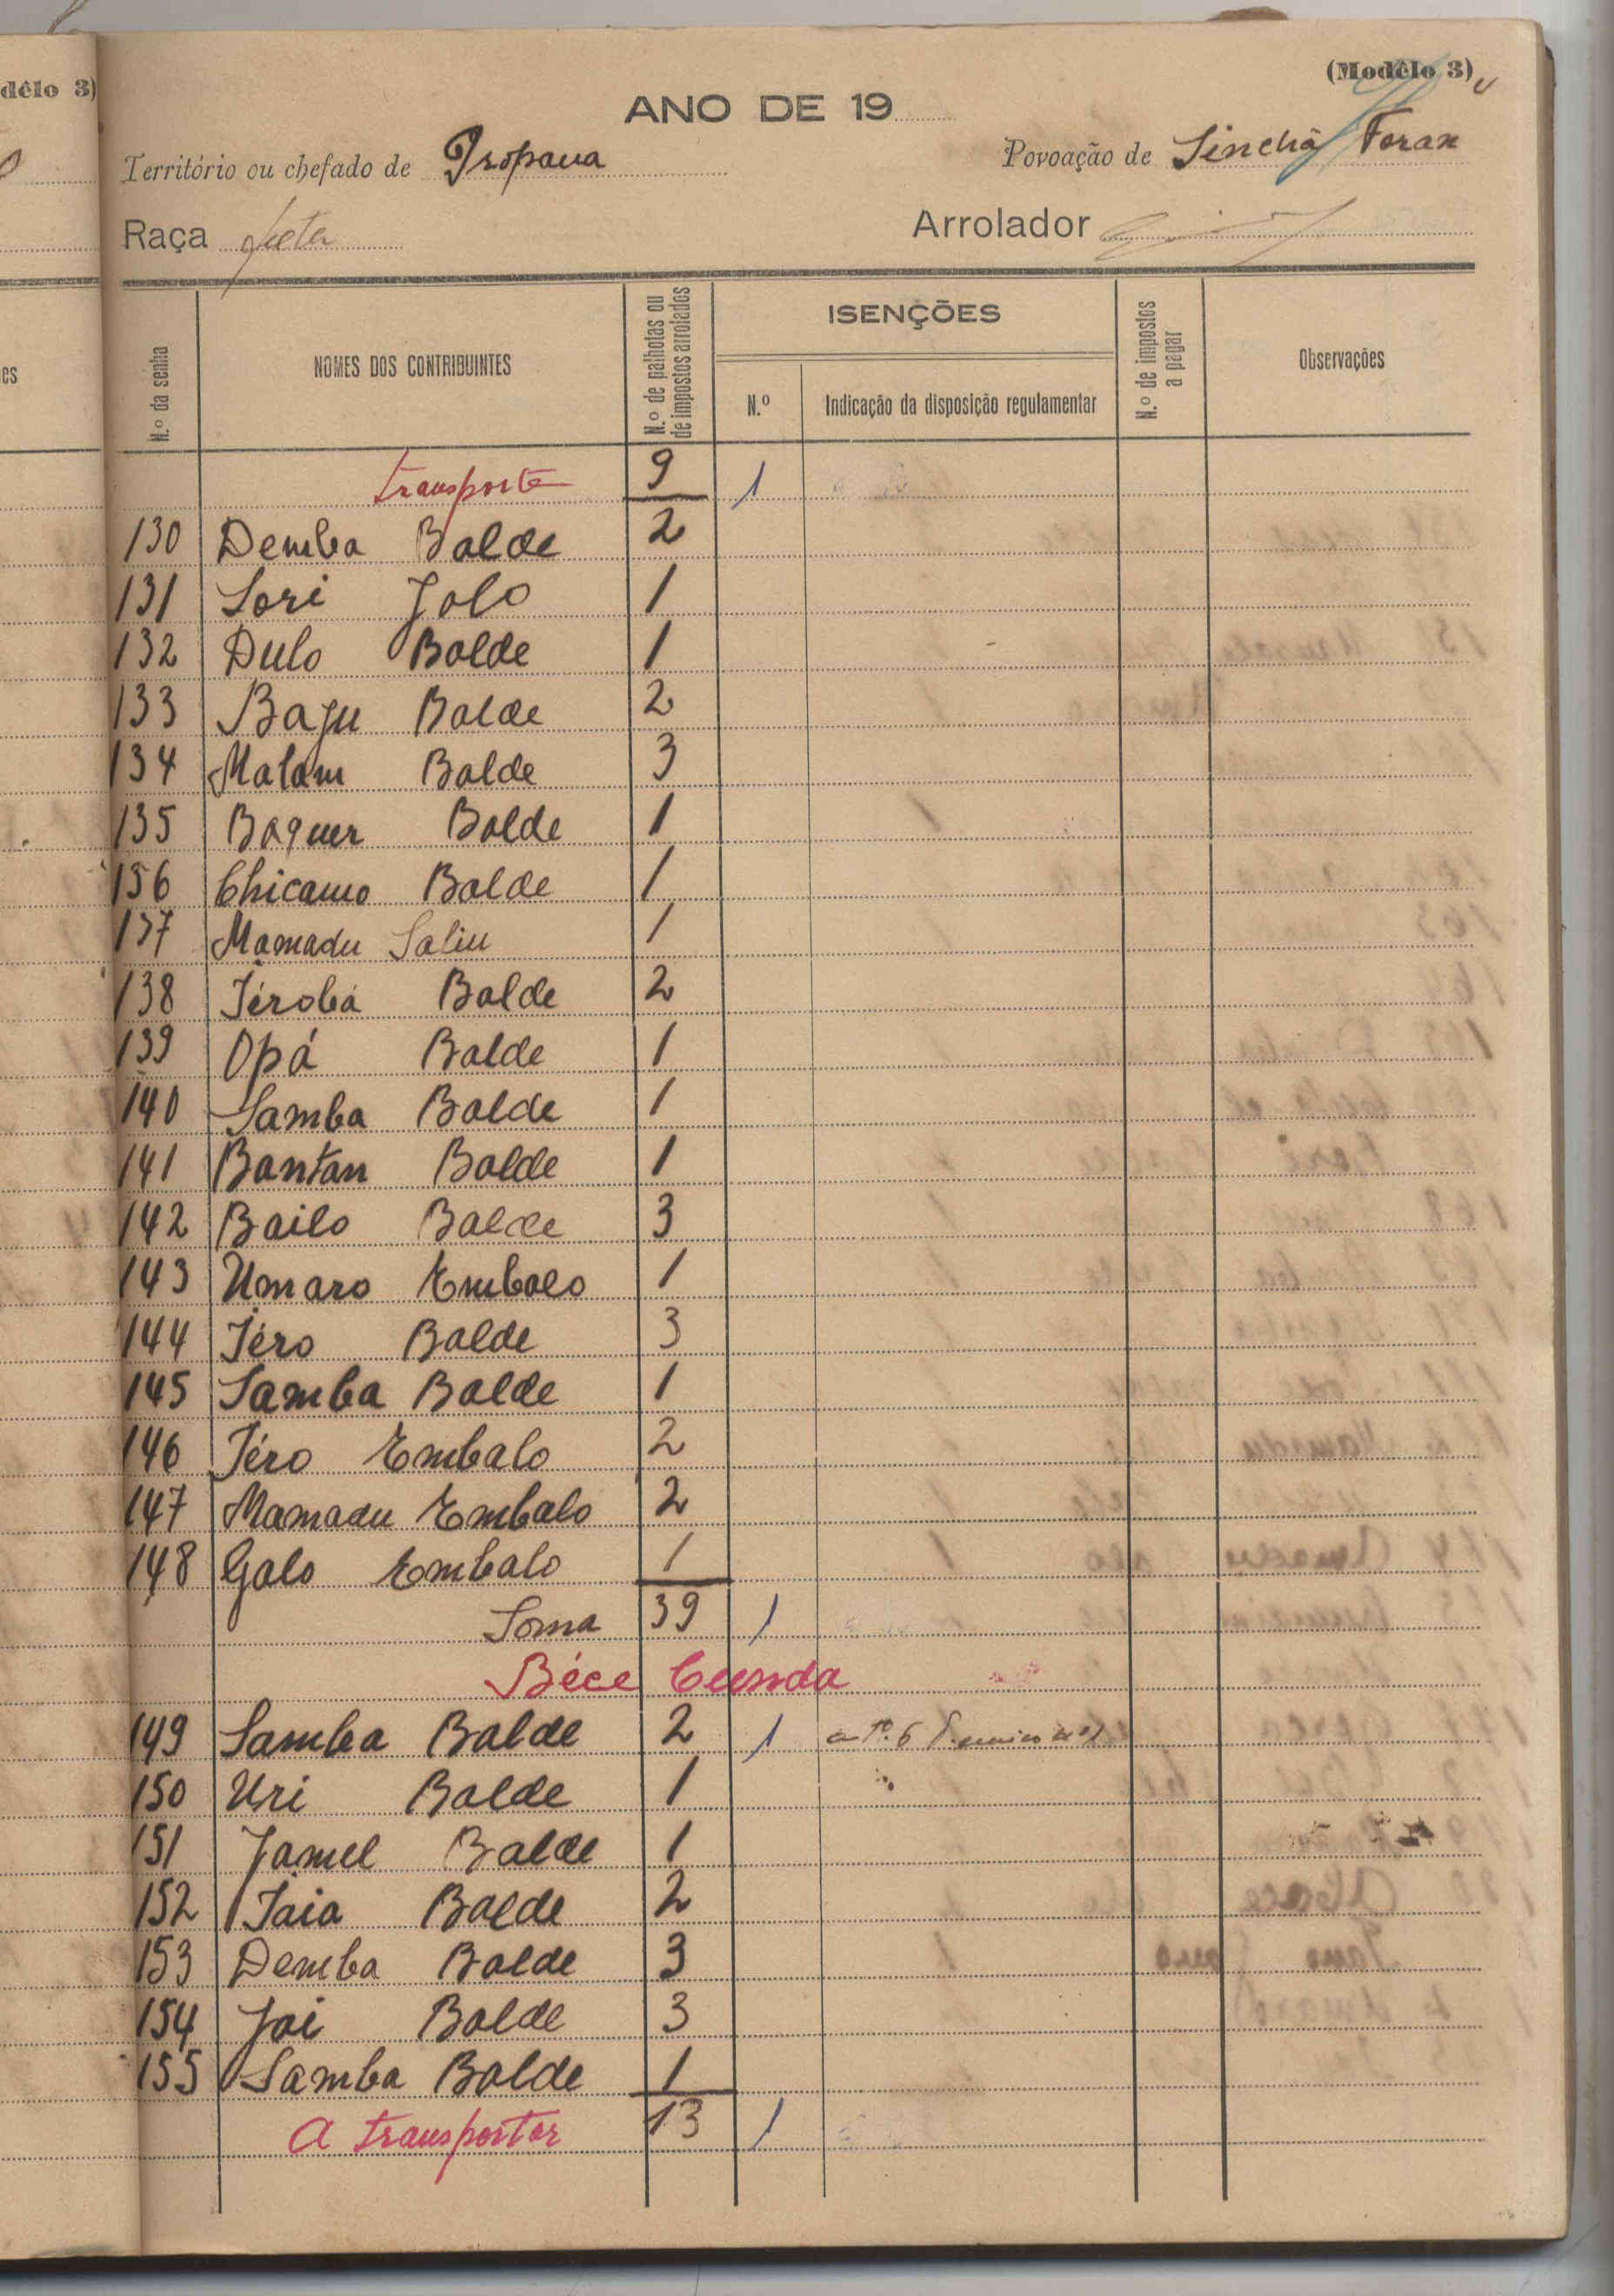 dêlo 3)
(Modêlo 3)
ANO DE 19
Território ou chefado de Propana
Povoação de Sinchã Foran
Raça
Arrolador
N.º da senha
NOMES DOS CONTRIBUINTES
N.º de palhotas ou de impostos arrolados
ISENÇÕES
N.º
Indicação da disposição regulamentar
N.º de impostos a pagar
Observações
transporte 9 1
130 Demba Balde 2
131 Sori Jolo 1
132 Dulo Balde 1
133 Baju Balde 2
134 Malam Balde 3
135 Baquer Balde 1
136 Chicamo Balde 1
137 Mamadu Saliu 1
138 Jérobá Balde 2
139 Opá Balde 1
140 Samba Balde 1
141 Bantan Balde 1
142 Bailo Balde 3
143 Umaro Embalo 1
144 Jéro Balde 3
145 Samba Balde 1
146 Jéro Embalo 2
147 Mamadu Embalo 2
148 Galo Embalo 1
Soma 39 1
Béce Cunda
149 Samba Balde 2 1
150 Uri Balde 1
151 Jamel Balde 1
152 Iaia Balde 2
153 Demba Balde 3
154 Joi Balde 3
155 Samba Balde 1
A transportar 13 1